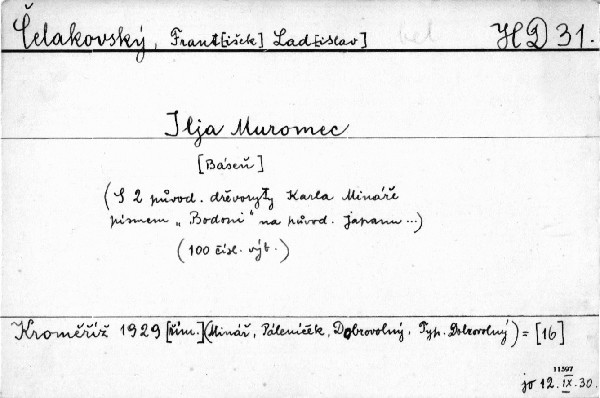 Čelakovský, Frant[išek] Lad[islav] HD 31.
Ilja Muromec
[Báseň]
(S 2 původ. dřevoryty Karla Mináře
písmem „Bodoni“ na původ. japanu...)
(100 čísl. výt.)
Kroměříž 1929 [řím.] (Minář, Páleníček, Dobrovolný, Typ. Dobrovolný) = [16]
11597
jo 12. IX. 30.